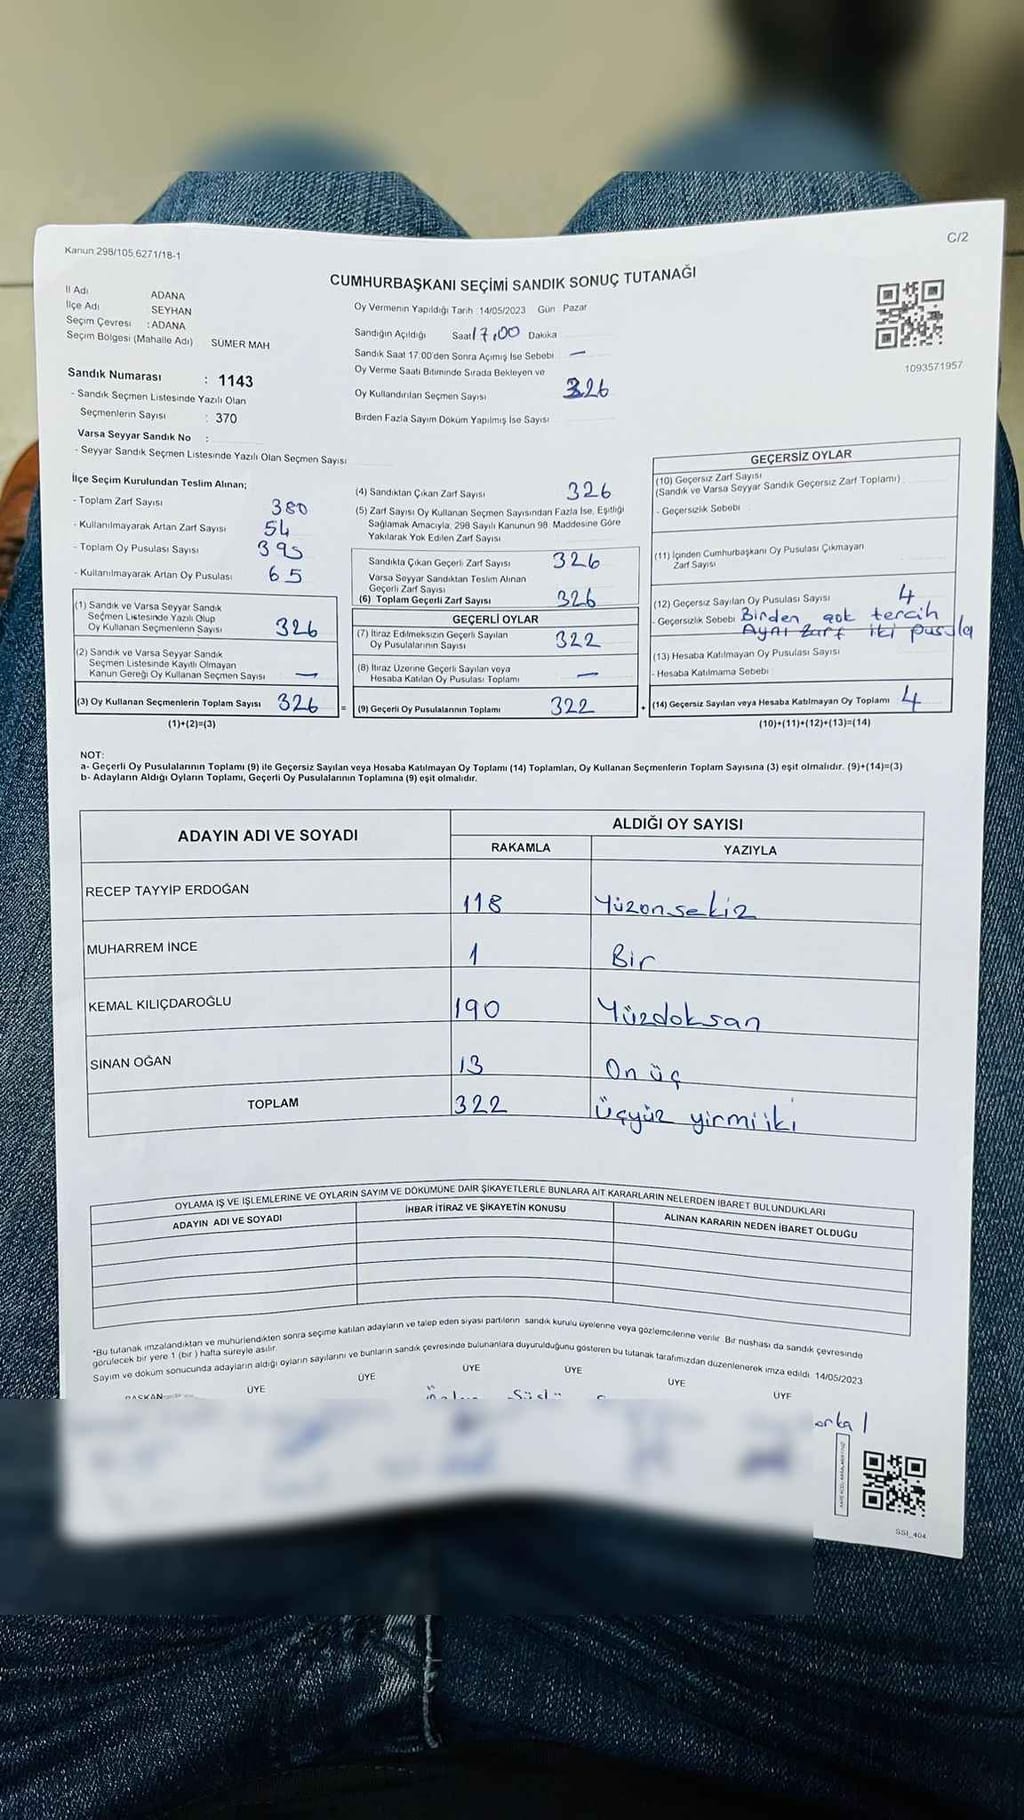 Kanun 298/105,6271/18-1
C/2
CUMHURBAŞKANI SEÇİMİ SANDIK SONUÇ TUTANAĞI
İl Adı ADANA
İlçe Adı SEYHAN
Seçim Çevresi : ADANA
Seçim Bölgesi (Mahalle Adı) SÜMER MAH
Sandık Numarası : 1143
- Sandık Seçmen Listesinde Yazılı Olan
Seçmenlerin Sayısı : 370
Varsa Seyyar Sandık No :
- Seyyar Sandık Seçmen Listesinde Yazılı Olan Seçmen Sayısı
Oy Vermenin Yapıldığı Tarih 14/05/2023 Gün Pazar
Sandığın Açıldığı Saat 17,00 Dakika
Sandık Saat 17:00'den Sonra Açımış İse Sebebi —
Oy Verme Saati Bitiminde Sırada Bekleyen ve
Oy Kullandırılan Seçmen Sayısı 326
Birden Fazla Sayım Döküm Yapılmış İse Sayısı
1093571957
İlçe Seçim Kurulundan Teslim Alınan;
- Toplam Zarf Sayısı 380
- Kullanılmayarak Artan Zarf Sayısı 54
- Toplam Oy Pusulası Sayısı 395
- Kullanılmayarak Artan Oy Pusulası 65
(1) Sandık ve Varsa Seyyar Sandık
Seçmen Listesinde Yazılı Olup
Oy Kullanan Seçmenlerin Sayısı 326
(2) Sandık ve Varsa Seyyar Sandık
Seçmen Listesinde Kayıtlı Olmayan
Kanun Gereği Oy Kullanan Seçmen Sayısı —
(3) Oy Kullanan Seçmenlerin Toplam Sayısı 326
(1)+(2)=(3)
(4) Sandıktan Çıkan Zarf Sayısı 326
(5) Zarf Sayısı Oy Kullanan Seçmen Sayısından Fazla İse, Eşitliği
Sağlamak Amacıyla, 298 Sayılı Kanunun 98. Maddesine Göre
Yakılarak Yok Edilen Zarf Sayısı
Sandıkta Çıkan Geçerli Zarf Sayısı 326
Varsa Seyyar Sandıktan Teslim Alınan
Geçerli Zarf Sayısı
(6) Toplam Geçerli Zarf Sayısı 326
GEÇERLİ OYLAR
(7) İtiraz Edilmeksizin Geçerli Sayılan
Oy Pusulalarının Sayısı 322
(8) İtiraz Üzerine Geçerli Sayılan veya
Hesaba Katılan Oy Pusulası Toplamı —
= (9) Geçerli Oy Pusulalarının Toplamı 322
GEÇERSİZ OYLAR
(10) Geçersiz Zarf Sayısı
(Sandık ve Varsa Seyyar Sandık Geçersiz Zarf Toplamı)
- Geçersizlik Sebebi
(11) İçinden Cumhurbaşkanı Oy Pusulası Çıkmayan
Zarf Sayısı
(12) Geçersiz Sayılan Oy Pusulası Sayısı 4
- Geçersizlik Sebebi Birden çok tercih
Aynı zarf iki pusula
(13) Hesaba Katılmayan Oy Pusulası Sayısı
- Hesaba Katılmama Sebebi
+ (14) Geçersiz Sayılan veya Hesaba Katılmayan Oy Toplamı 4
(10)+(11)+(12)+(13)=(14)
NOT:
a- Geçerli Oy Pusulalarının Toplamı (9) ile Geçersiz Sayılan veya Hesaba Katılmayan Oy Toplamı (14) Toplamları, Oy Kullanan Seçmenlerin Toplam Sayısına (3) eşit olmalıdır. (9)+(14)=(3)
b- Adayların Aldığı Oyların Toplamı, Geçerli Oy Pusulalarının Toplamına (9) eşit olmalıdır.
ADAYIN ADI VE SOYADI ALDIĞI OY SAYISI
RAKAMLA YAZIYLA
RECEP TAYYİP ERDOĞAN 118 Yüzonsekiz
MUHARREM İNCE 1 Bir
KEMAL KILIÇDAROĞLU 190 Yüzdoksan
SİNAN OĞAN 13 On üç
TOPLAM 322 Üçyüz yirmiiki
OYLAMA İŞ VE İŞLEMLERİNE VE OYLARIN SAYIM VE DÖKÜMÜNE DAİR ŞİKAYETLERLE BUNLARA AİT KARARLARIN NELERDEN İBARET BULUNDUKLARI
ADAYIN ADI VE SOYADI İHBAR İTİRAZ VE ŞİKAYETİN KONUSU ALINAN KARARIN NEDEN İBARET OLDUĞU
*Bu tutanak imzalandıktan ve mühürlendikten sonra seçime katılan adayların ve talep eden siyasi partilerin sandık kurulu üyelerine veya gözlemcilerine verilir. Bir nüshası da sandık çevresinde
görülecek bir yere 1 (bir) hafta süreyle asılır.
Sayım ve döküm sonucunda adayların aldığı oyların sayılarını ve bunların sandık çevresinde bulunanlara duyurulduğunu gösteren bu tutanak tarafımızdan düzenlenerek imza edildi. 14/05/2023
BAŞKAN ÜYE ÜYE ÜYE ÜYE ÜYE ÜYE
SSI_404